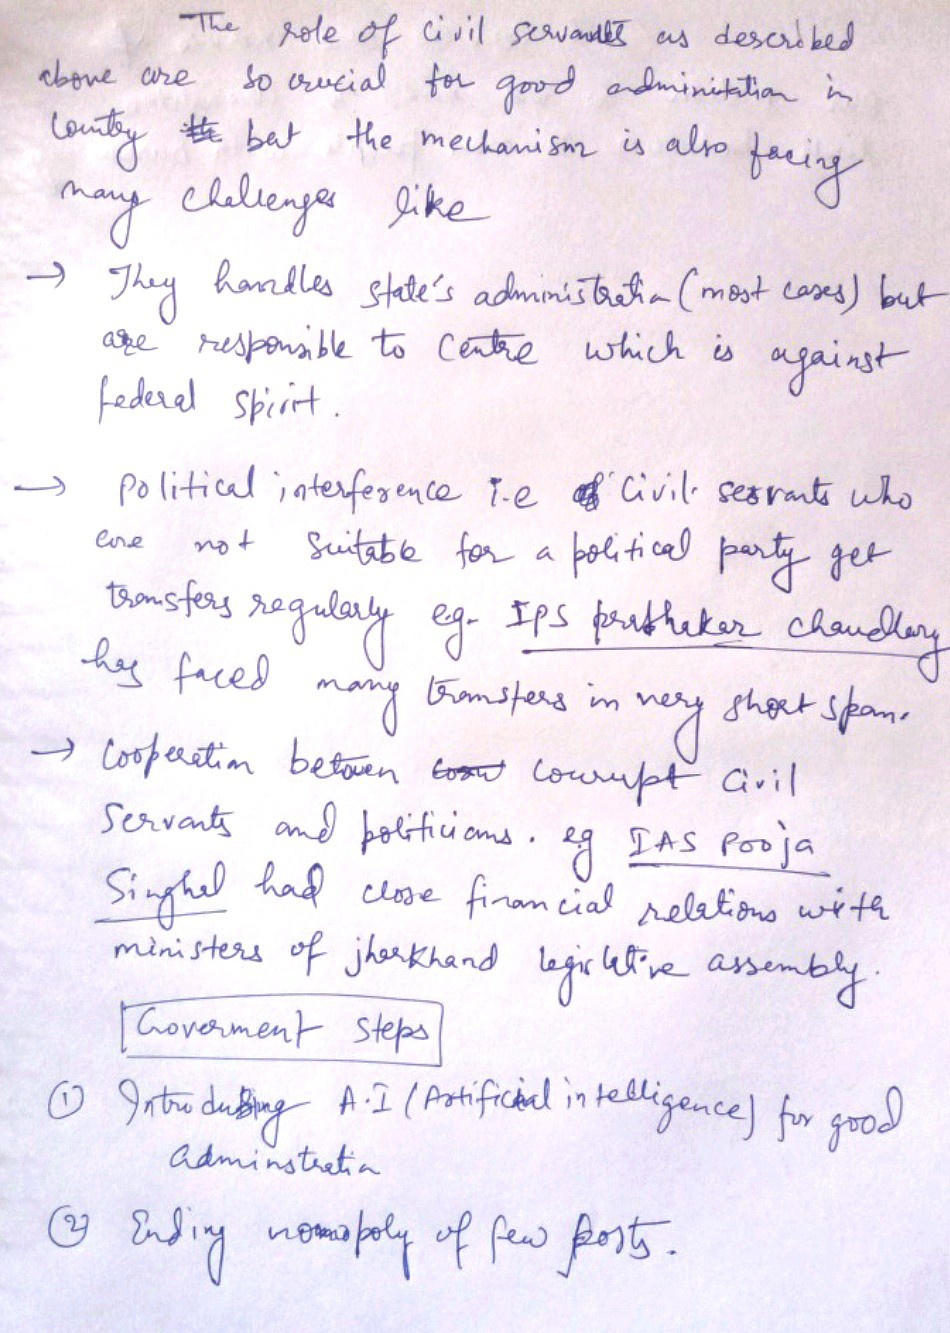 The role of Civil servants as described
above are so crucial for good administation in
Country but the mechanism is also facing
many challenges like
→ They handles state's administratin (most cases) but
are responsible to Centre which is against
federal spirit.
→ political interference i.e of Civil servants who
are not suitable for a political party get
transfers regularly eg. IPS prabhakar chaudhary
has faced many transfers in very short span.
→ Cooperation between courrupt Civil
Servants and politicians. eg IAS Pooja
Singhal had close financial relations with
ministers of jharkhand legislative assembly.
Goverment Steps
① Introducing A.I (Artificial intelligence) for good
adminstratin
② Ending monopoly of few posts.